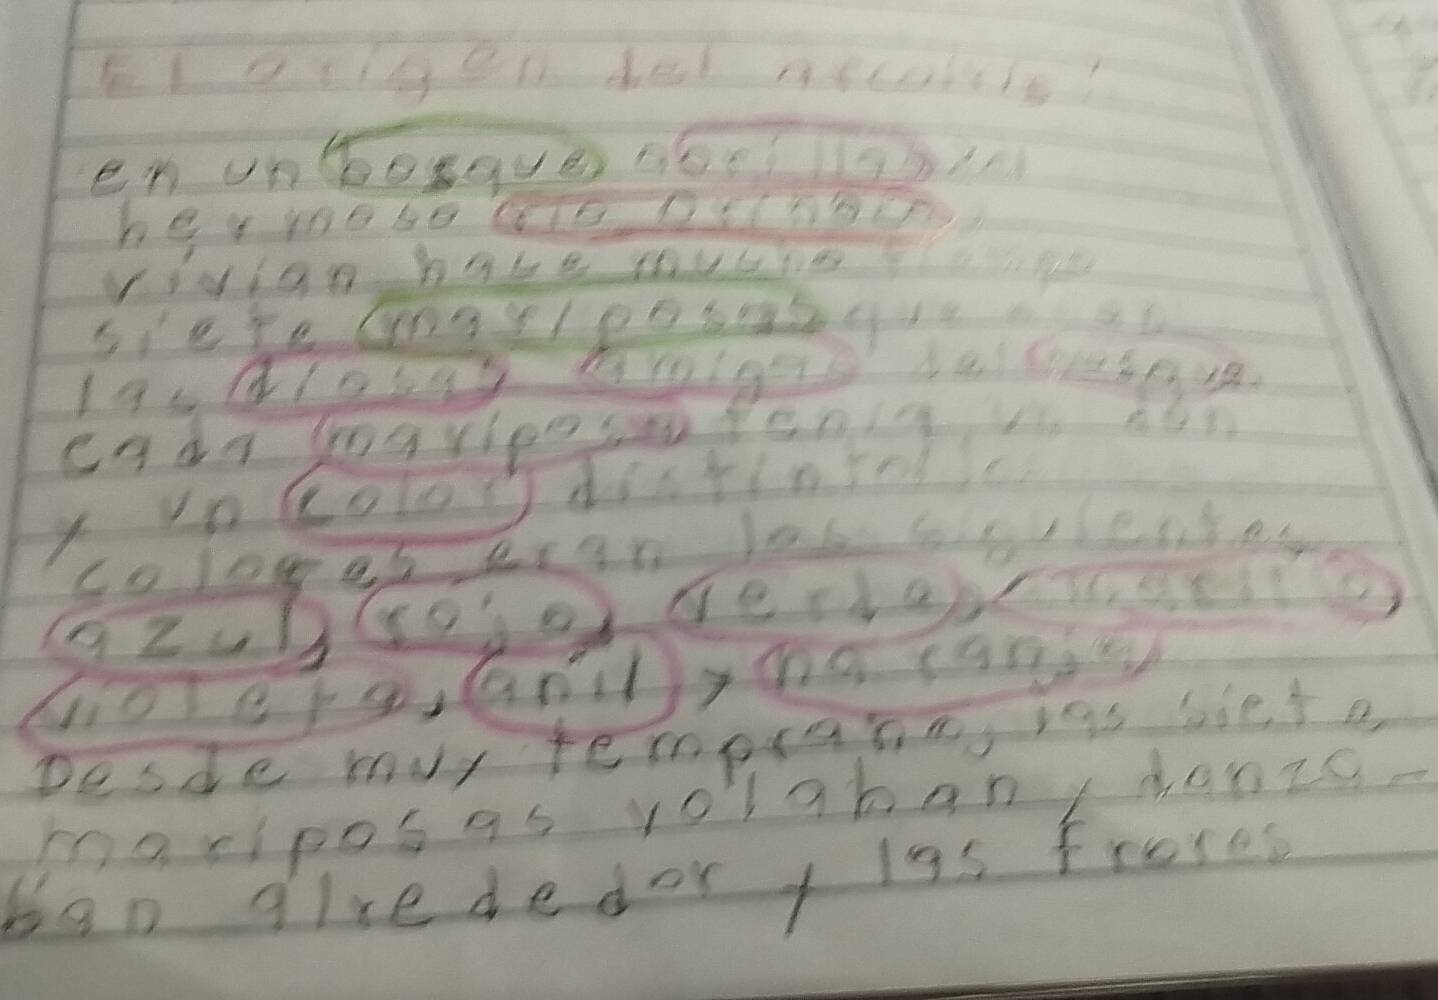 El origen del arcoiris!
en un bosque a orillas del
hermoso rio
vivian hace mucho tiempo
siete mariposas que eran
las diosas amigas del bosque.
cada mariposa tenia un don
y un color distinto los
colores eran los siguientes
azul, rojo, verde, amarillo,
violeta, añil y naranja
Desde muy temprano, las siete
mariposas volaban, danza-
ban alrededor y las frores